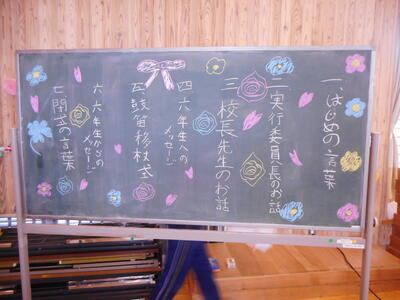 一 はじめの言葉
二 実行委員長のお話
三 校長先生のお話
四 六年生への
メッセージ
五 鼓笛移杖式
六 六年生からの
メッセージ
七 閉式の言葉